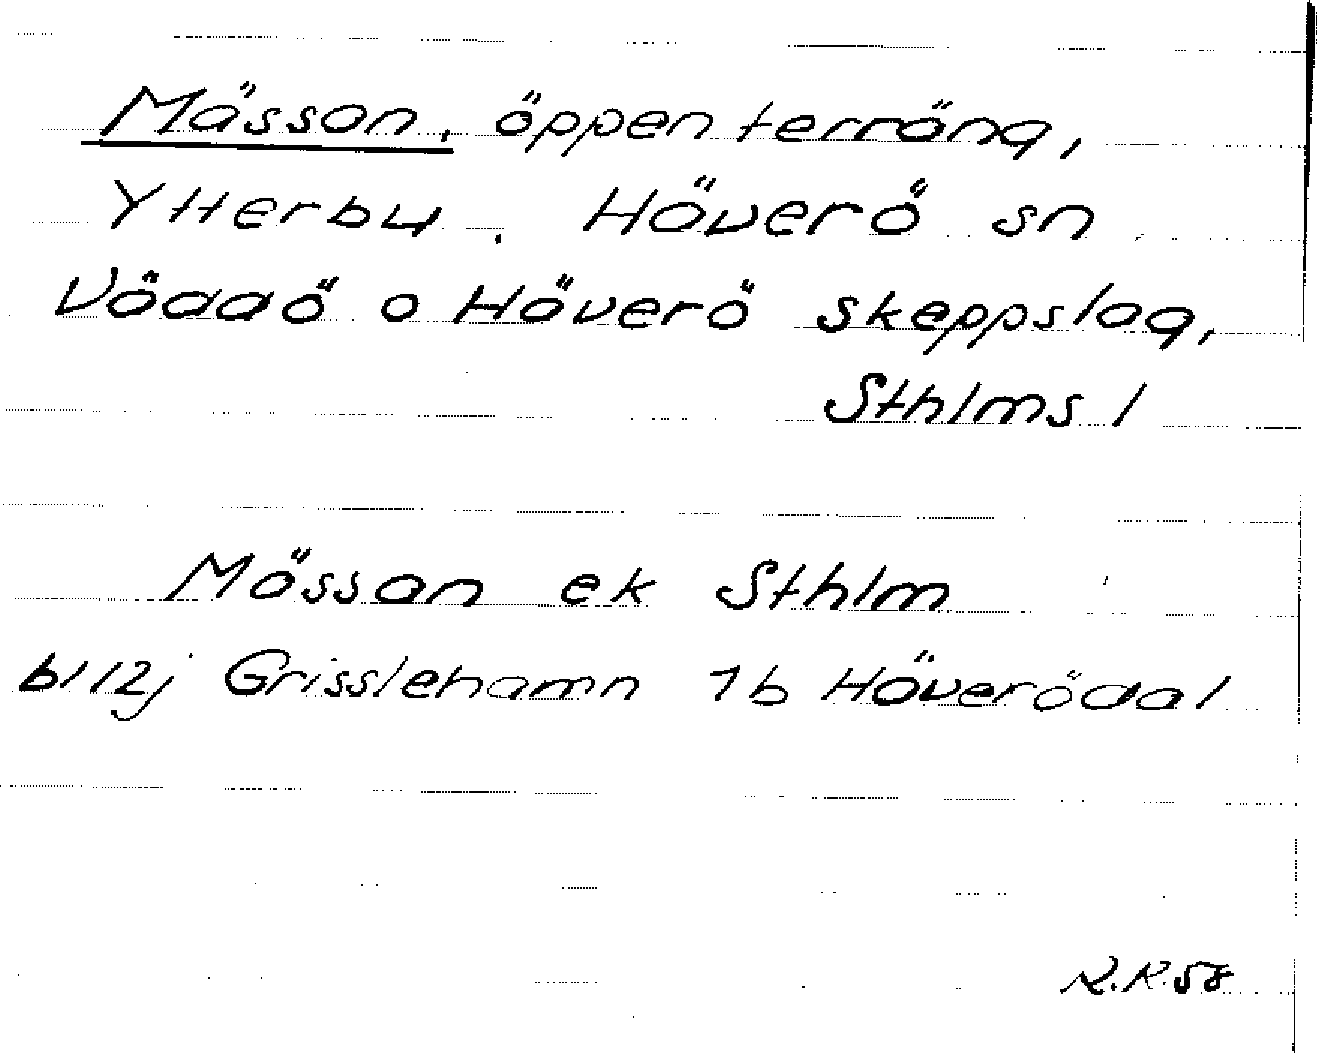 Mässan, öppen terräng,
Ytterby. Häverö sn
Väddö o Häverö skeppslag,
Sthlms l
Mässan ek Sthlm
bl 12j Grisslehamn 1b Häverödal
R.R. 58